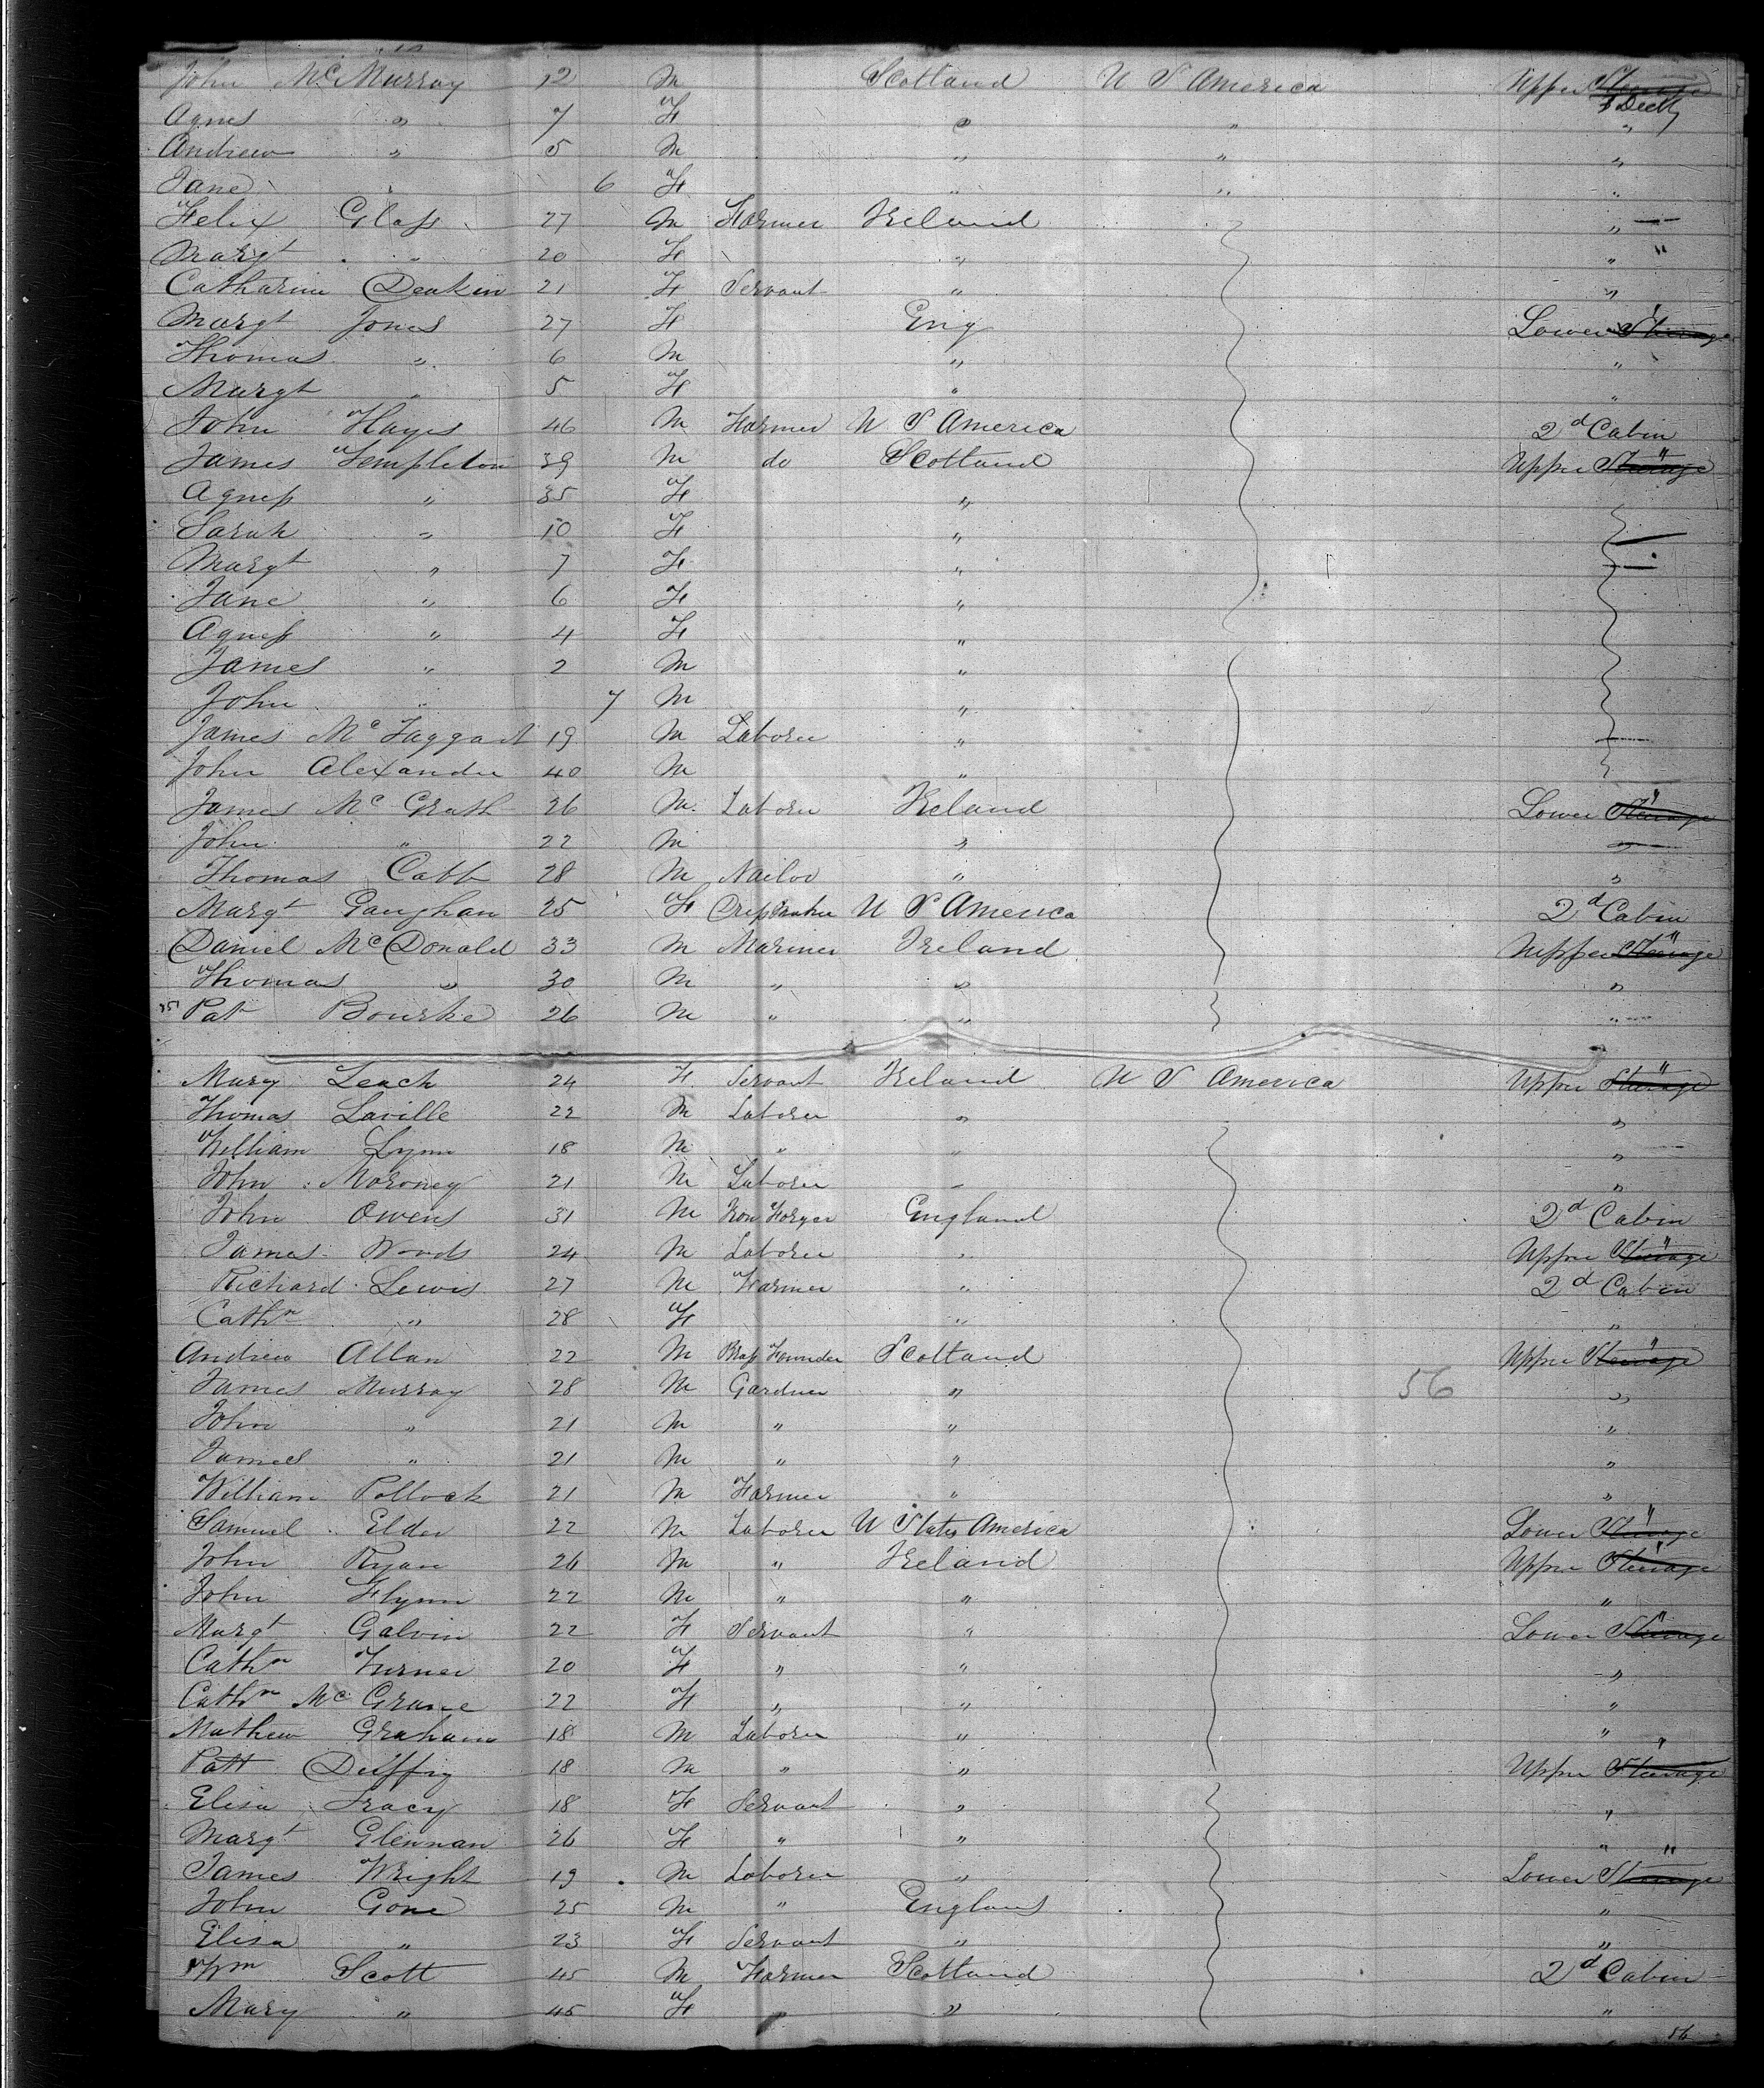 John McMurray 12 M Scotland U S America Upper Steerage
Deck
Agnes " 7 F " " "
Andrew " 5 M " " "
Jane " 6 F " " "
Felix Glass 27 M Farmer Ireland "
Margt " 20 F " "
Catharine Deakin 21 F Servant " "
Margt Jones 27 F Eng Lower Steerage
Thomas " 6 M " "
Margt " 5 F " "
John Hayes 46 M Farmer U S America 2d Cabin
James Templeton 39 M do Scotland Upper Steerage
Agness " 35 F "
Sarah " 10 F "
Margt " 7 F "
Jane " 6 F "
Agness " 4 F "
James " 2 M "
John " 7 M "
James McTaggart 19 M Laborer "
John Alexander 40 M "
James McGrath 26 M Laborer Ireland Lower Steerage
John " 22 M " "
Thomas Cabb 28 M Nailor " "
Margt Gaughan 25 F U S America 2d Cabin
Daniel McDonald 33 M Mariner Ireland Upper Steerage
Thomas " 30 M " " "
Pat Bourke 26 M " " "
Mary Leach 24 F Servant Ireland U S America Upper Steerage
Thomas Laville 22 M Laborer " "
William Lynn 18 M " " "
John Moroney 21 M Laborer " "
John Owens 31 M Iron Forger England 2d Cabin
James Woods 24 M Laborer " Upper Steerage
Richard Lewis 27 M Farmer " 2d Cabin
Cathn " 28 F " "
Andrew Allan 22 M Brass Founder Scotland Upper Steerage
James Murray 28 M Gardner " 56 "
John " 21 M " " "
James " 21 M " " "
William Pollock 21 M Farmer " "
Samuel Elder 22 M Laborer U States America Lower Steerage
John Ryan 26 M " Ireland Upper Steerage
John Flynn 22 M " " "
Margt Galvin 22 F Servant " Lower Steerage
Cathn Turner 20 F " " "
Cathn McGrane 22 F " " "
Mathew Graham 18 M Laborer " "
Patt Duffy 18 M " " Upper Steerage
Elisa Tracy 18 F Servant " "
Margt Glennan 26 F " " "
James Wright 19 M Laborer " Lower Steerage
John Gone 25 M " England "
Elisa " 23 F Servant " "
Wm Scott 45 M Farmer Scotland 2d Cabin
Mary " 45 F " " "
56